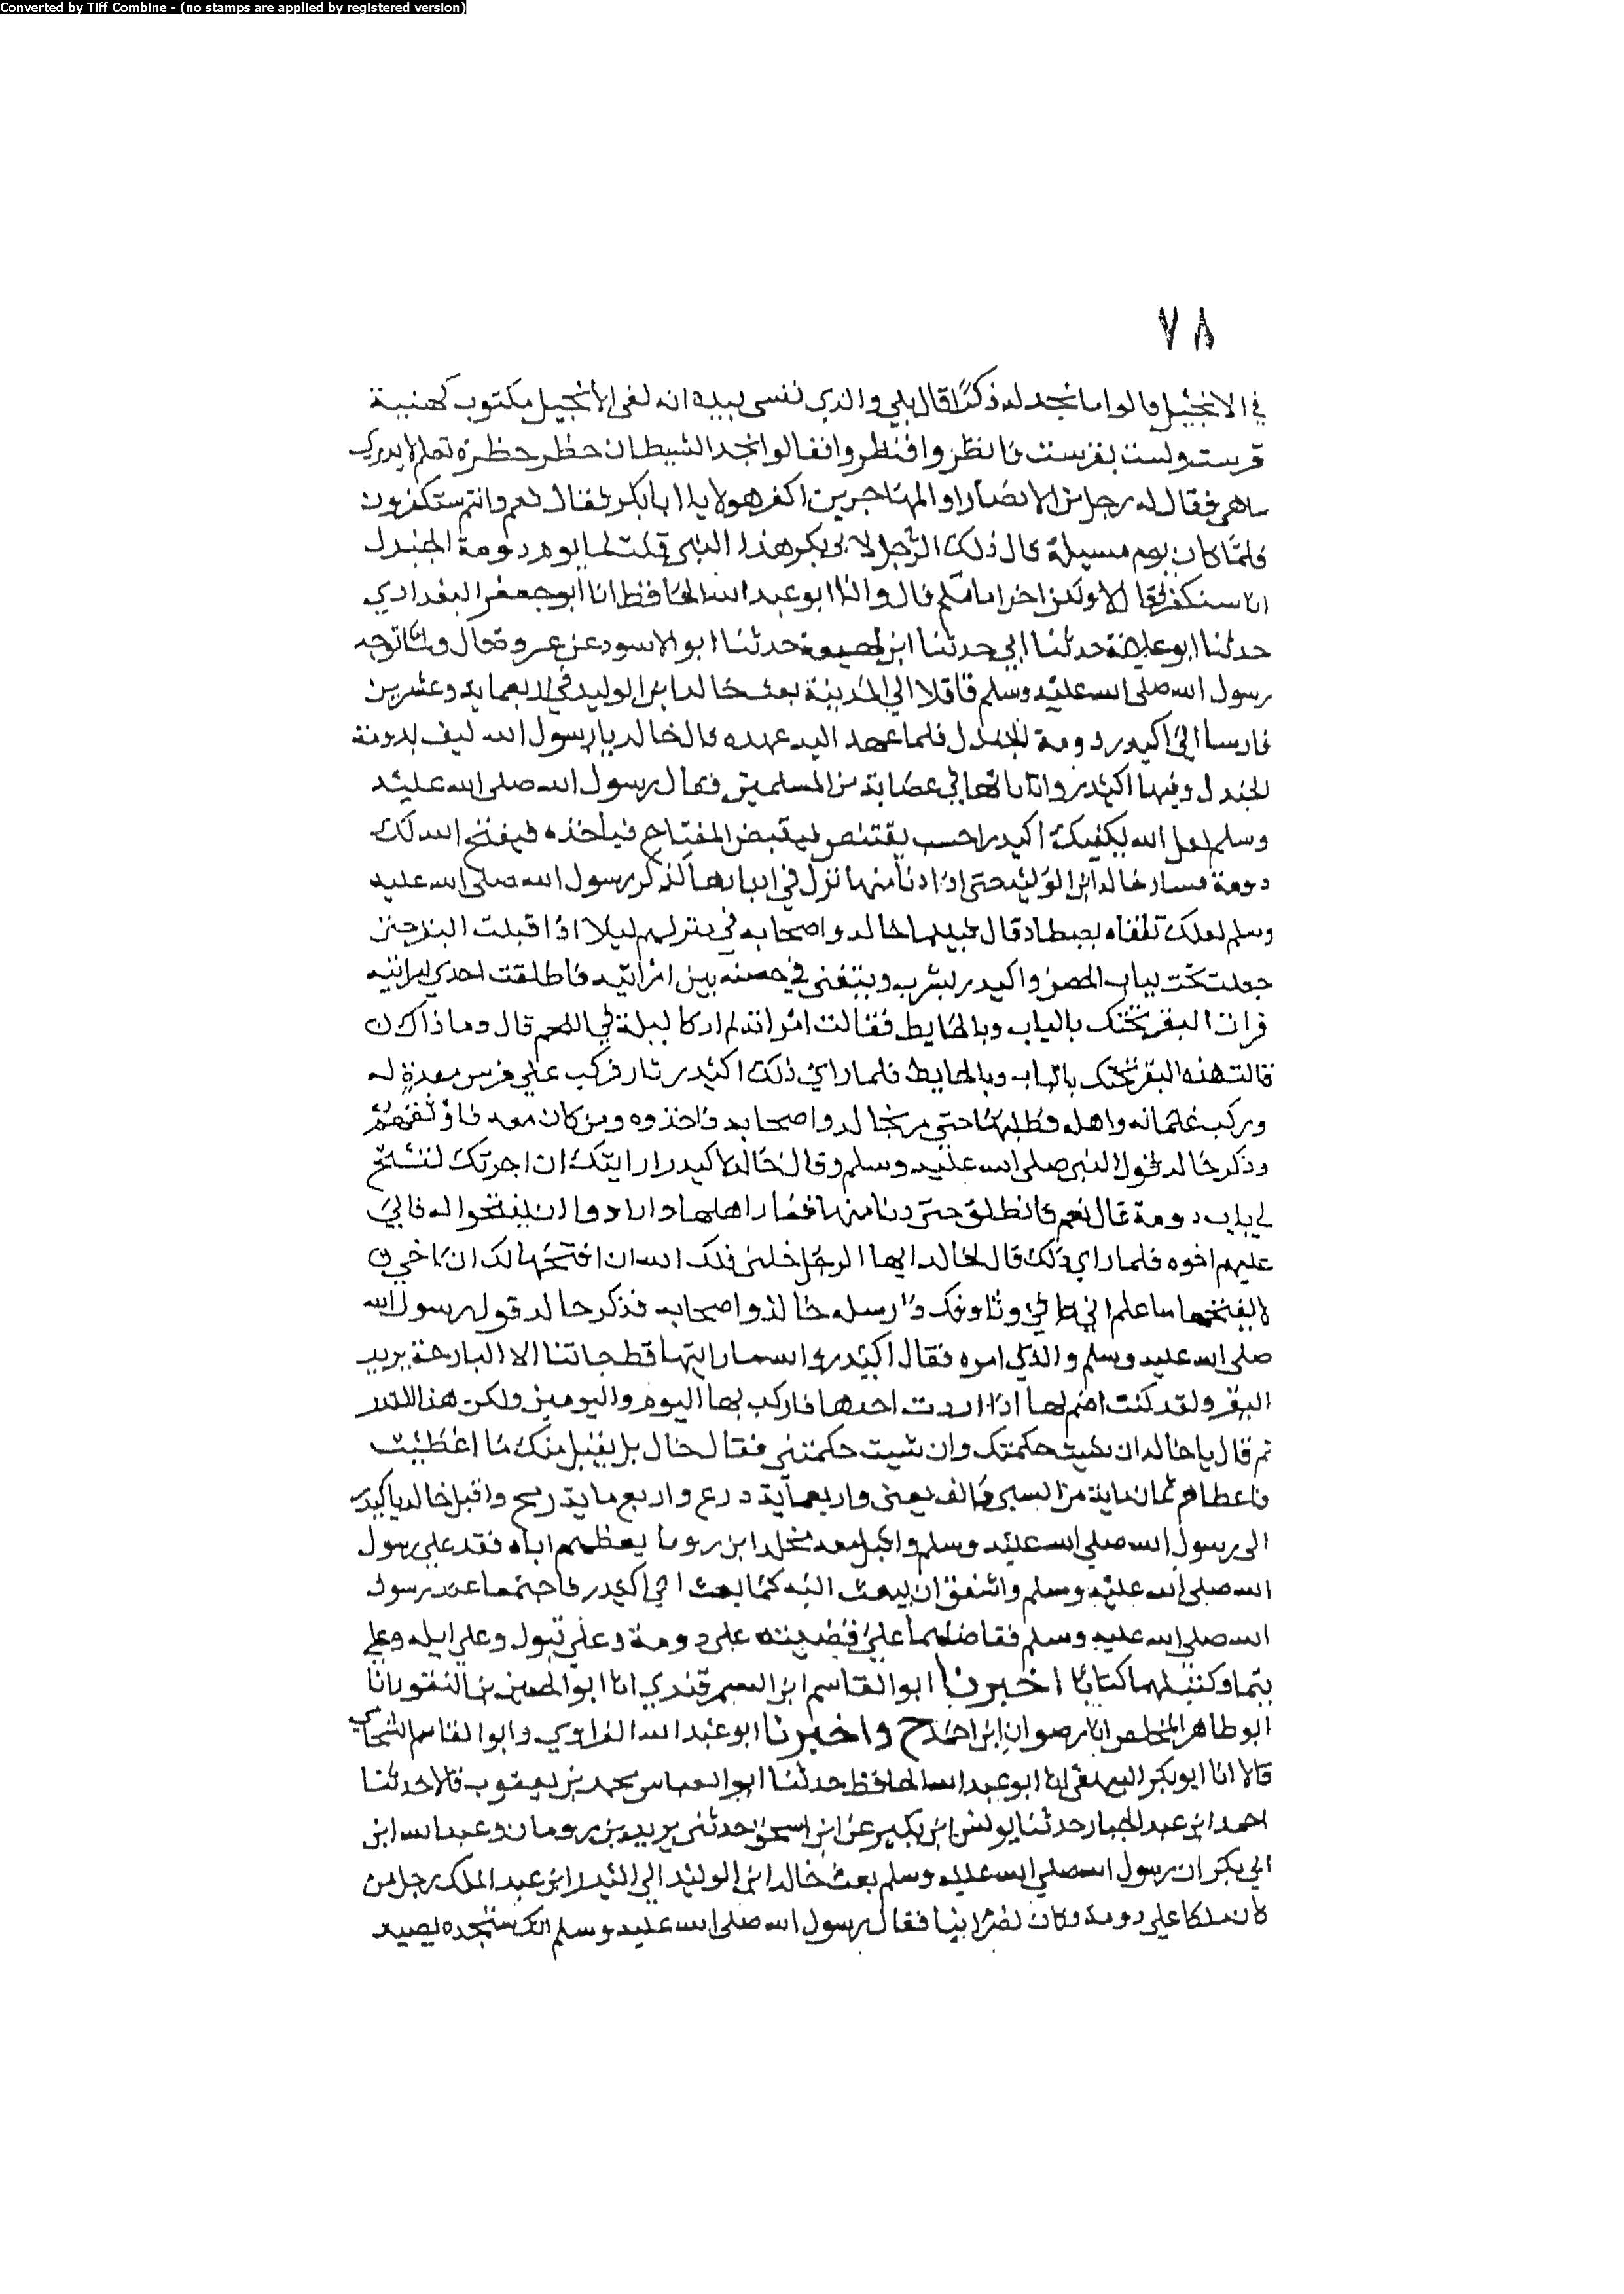 Converted by Tiff Combine - (no stamps are applied by registered version)
٧٨
في الانجيل قالوا ما نجد له ذكرا قال بلي والذي نفسي بيده انه لفي الانجيل مكتوب كهنية
قرست ولست بقرست فانظروا فنظروا فقالوا نجد الشيطان حظر حظرة تعلم لا يدري
ماهي فقال له رجل من الانصار او المهاجرين اكفر هولاء يا ابا بكر فقال نعم وانتم ستكفرون
فلما كان يوم مسيلمة قال ذلك الرجل لابي بكر هذا الذي قلت لنا يوم دومة الجندل
انا سنكفر فقال لا ولكن اخراياتكم قال وانا ابو عبد الله الحافظ انا ابو جعفر البغدادي
حدثنا ابو علاثة حدثنا ابي حدثنا ابن لهيعة حدثنا ابو الاسود عن عروة قال ولما توجه
رسول الله صلى الله عليه وسلم قافلا الي المدينة بعث خالد ابن الوليد في اربعماية وعشرين
فارسا الي اكيدر دومة الجندل فلما عهد اليه عهده قال خالد يا رسول الله كيف بدومة
الجندل وفيها اكيدر وانا ناتيها في عصابة من المسلمين فقال رسول الله صلى الله عليه
وسلم لعل الله يكفيك اكيدر احسب يقتنص فيقبض المفتاح فياخذه فيفتح الله لك
دومة فسار خالد ابن الوليد حتى اذا دنا منها نزل في ادبارها لذكر رسول الله صلى الله عليه
وسلم لعلك تلقاه يصطاد قال فبينما خالد واصحابه في منزلهم ليلا اذا قبلت البقر حتى
جعلت تحتك بباب الحصن واكيدر يشرب ويتغنى في حصنه بين امراتيه فاطلعت احدي امراتيه
فرات البقر تحتك بالباب وبالحايط فقالت امراته لم ار كالليلة في اللحم قال وما ذاك ن
قالت هذه البقر تحتك بالباب وبالحايط فلما راي ذلك اكيدر ثار فركب علي فرس معدة له
وركب غلمانه واهله فطلبها حتى مر بخالد واصحابه فاخذوه ومن كان معه فاوثقوهم
وذكر خالد قول النبي صلى الله عليه وسلم وقال خالد لاكيدر ارايتك ان اجرتك لتفتح
لي باب دومة قال نعم فانطلق حتى دنا منها فثار اهلها وارادوا ان يفتحوا له فابي
عليهم اخوه فلما راي ذلك قال لخالد ايها الرجل خلني فلك الله ان افتحها لك ان اخي ن
لا يفتحها ما علم اني في وثاقك فارسله خالد واصحابه فذكر خالد قول رسول الله
صلى الله عليه وسلم والذي امره فقال اكيدر والله ما رايتها قط جاتنا الا البارحة يريد
البقر ولقد كنت اضمر لها اذا اردت اخدها فاركب لها اليوم واليومين ولكن هذا القدر
ثم قال يا خالد ان شيت حكمتك وان شيت حكمتني فقال خالد بل نقبل منك ما اعطيت
فاعطاهم ثمان ماية من السبي والف بعير واربعماية درع واربع ماية رمح واقبل خالد باكيدر
الى رسول الله صلى الله عليه وسلم واقبل معه يحنه ابن روبة عظيم ايلة فقدم علي رسول
الله صلى الله عليه وسلم واشفق ان يبعث اليه كما بعث الي اكيدر فاجتمعا عند رسول
الله صلى الله عليه وسلم فقاضاهما علي قضيته علي دومة وعلي تبوك وعلي ايله وعلي
تيما وكتب لهما كتابا اخبرنا ابو القاسم ابن السمرقندي انا ابو الحسين بن النقور انا
ابو طاهر المخلص انا رضوان ابن احمد ح واخبرنا ابو عبد الله الفراوي وابو القاسم الشحامي
قالا انا ابو بكر البيهقي انا ابو عبد الله الحافظ حدثنا ابو العباس محمد بن يعقوب قالا حدثنا
احمد ابن عبد الجبار حدثنا يونس ابن بكير عن ابن اسحق حدثني يزيد بن رومان وعبد الله ابن
ابي بكر ان رسول الله صلي الله عليه وسلم بعث خالد ابن الوليد الي اكيدر ابن عبد الملك رجل من
كان ملكا علي دومة وكان نصرانيا فقال رسول الله صلى الله عليه وسلم انك ستجده يصيد